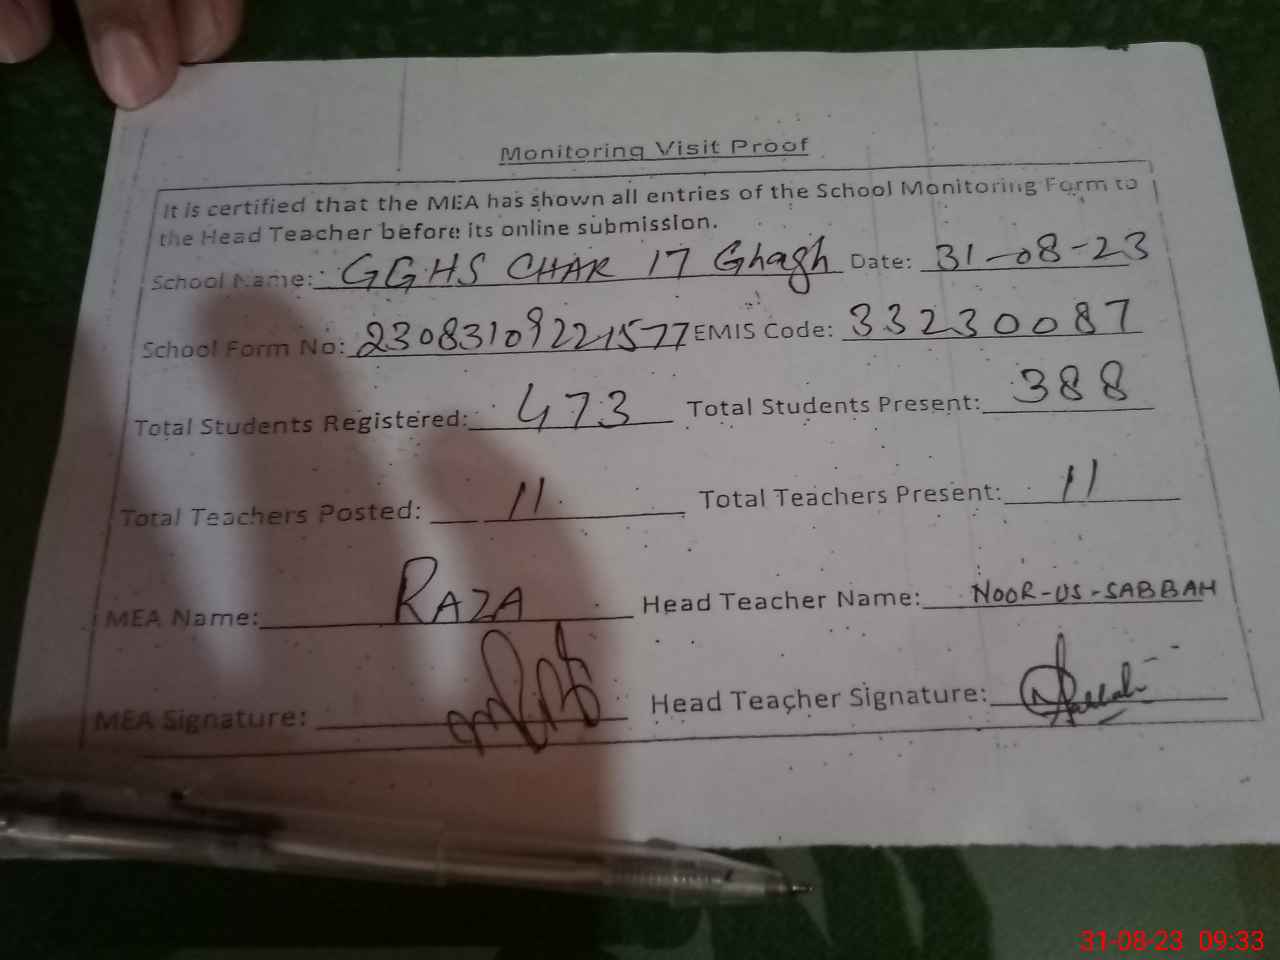 Monitoring Visit Proof
It is certified that the MEA has shown all entries of the School Monitoring Form to
the Head Teacher before its online submission.
School Name: GGHS CHAK 17 Ghagh Date: 31-08-23
School Form No: 230831092221577 EMIS Code: 33230087
Total Students Registered: 473 Total Students Present: 388
Total Teachers Posted: 11 Total Teachers Present: 11
MEA Name: RAZA Head Teacher Name: NOOR-US-SABBAH
MEA Signature: Head Teacher Signature:
31-08-23 09:33